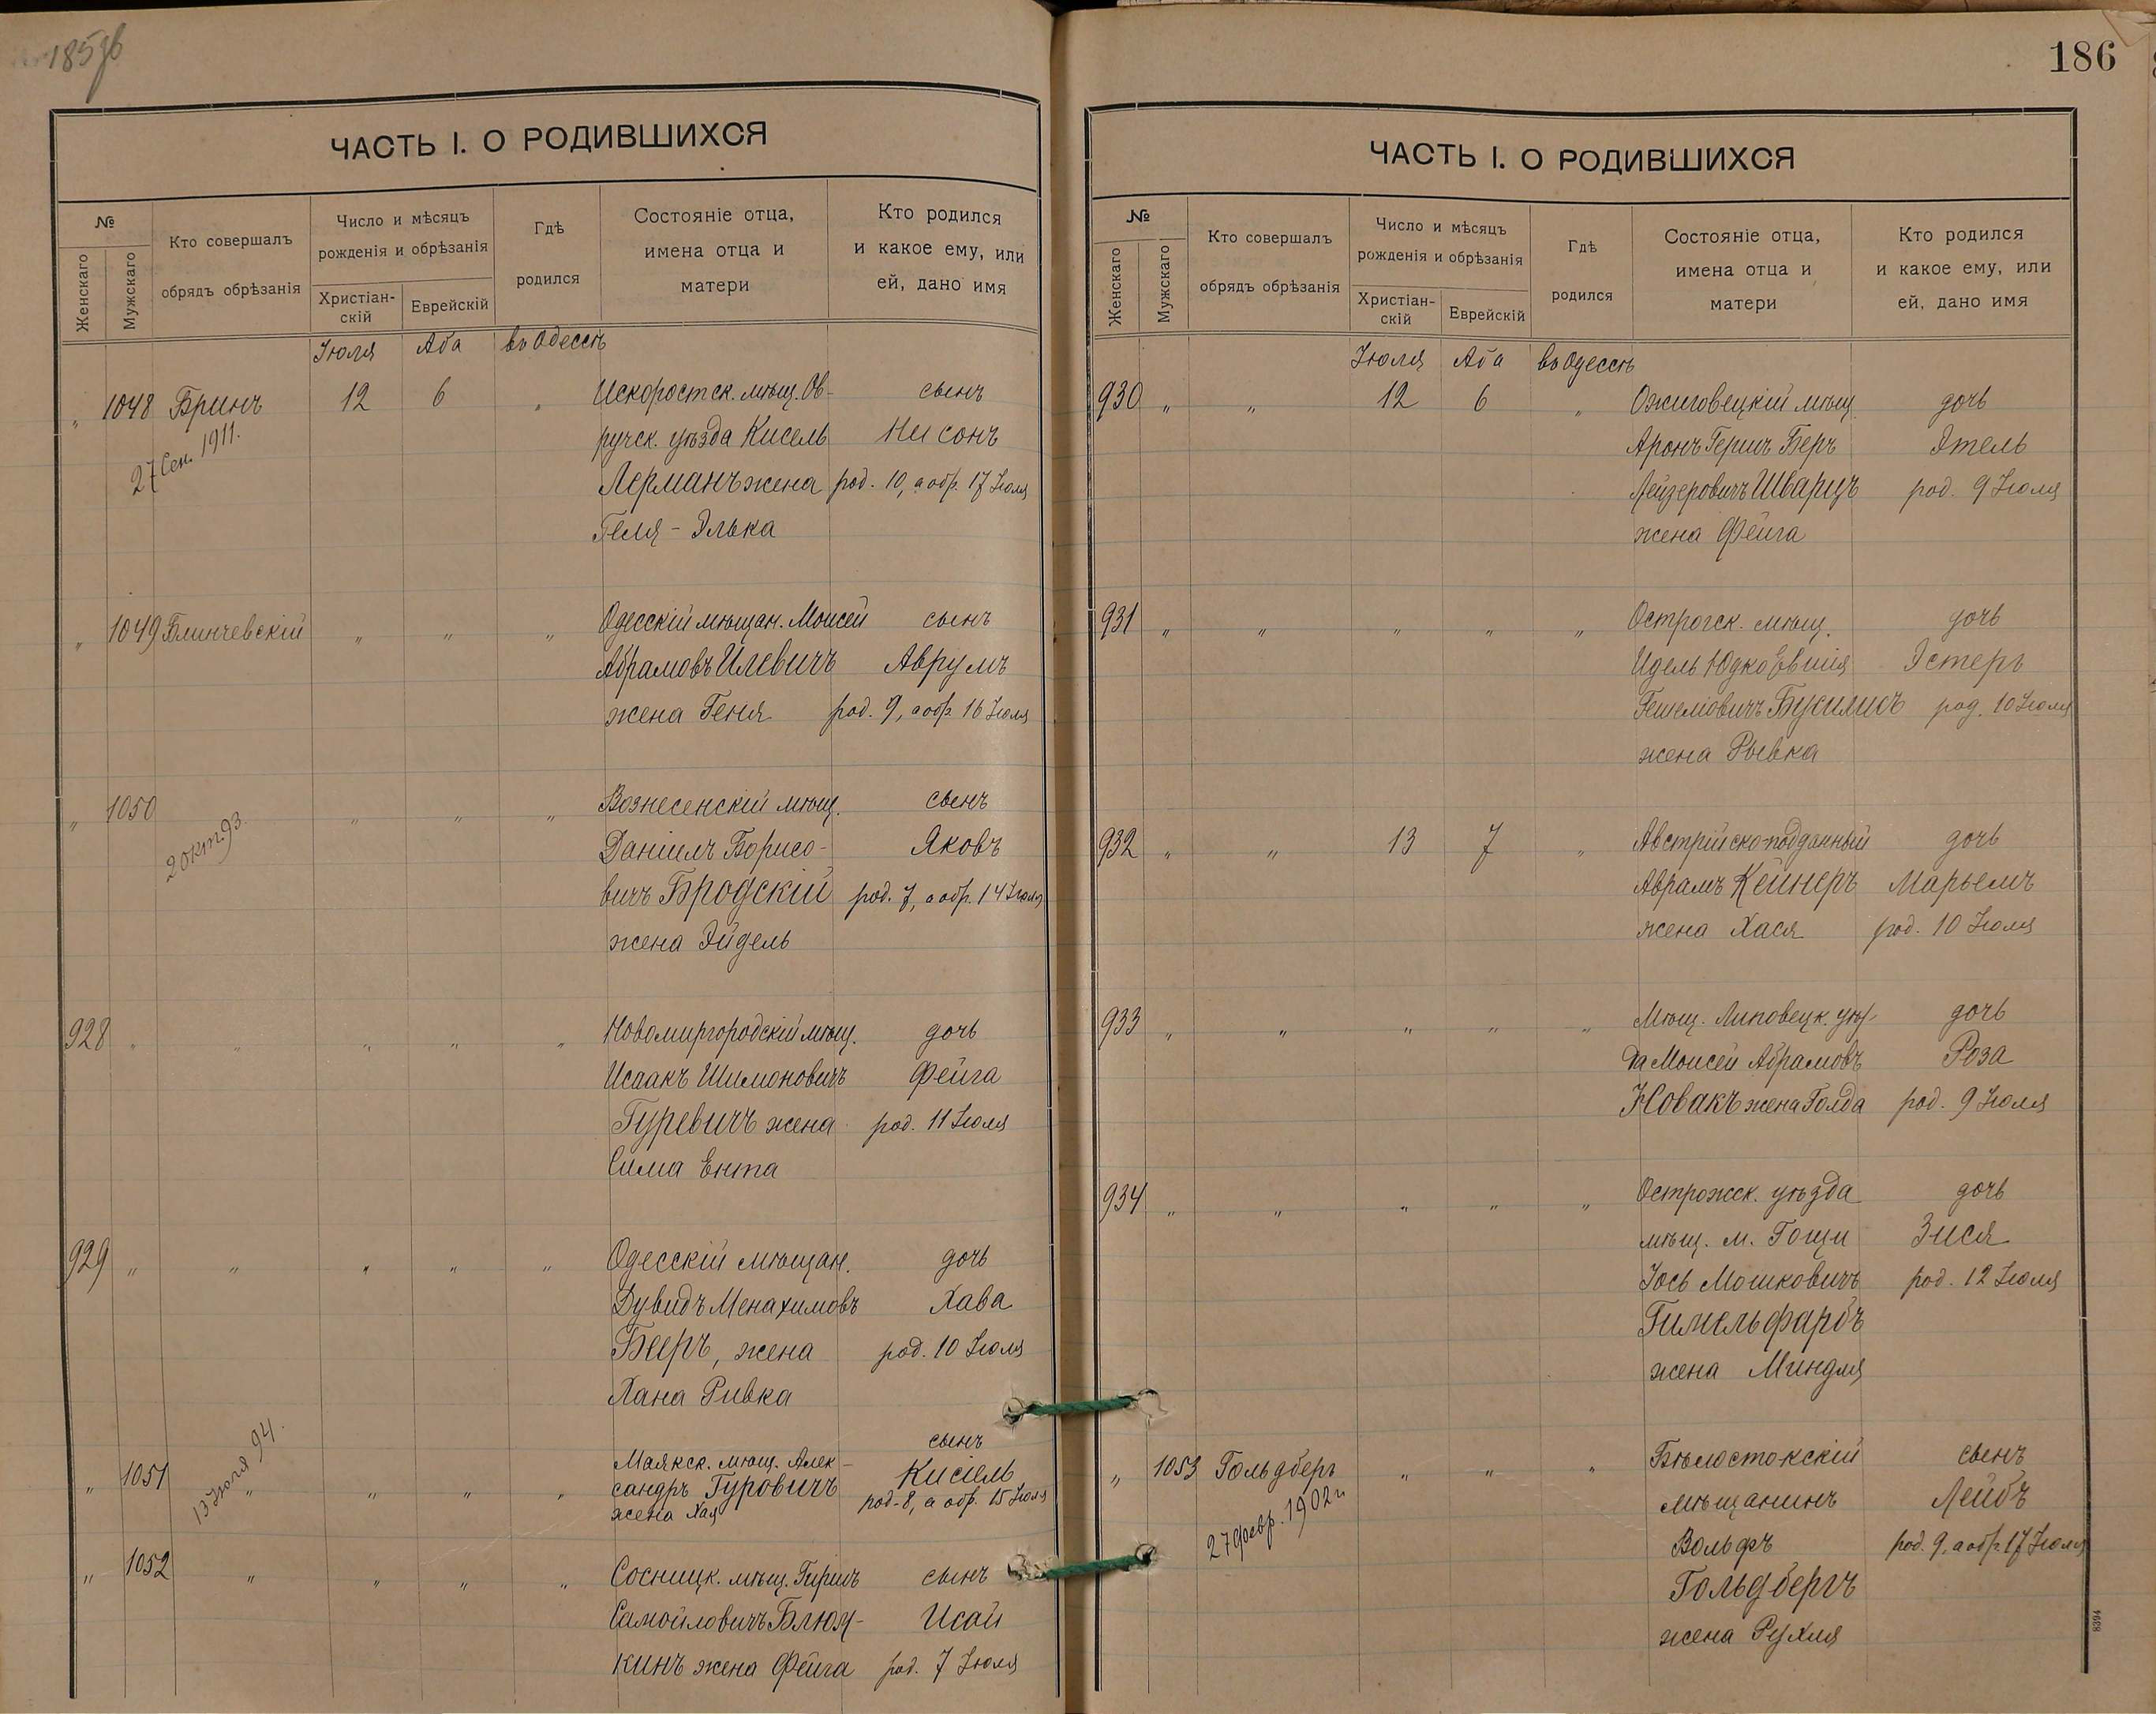 185об
ЧАСТЬ I. О РОДИВШИХСЯ
№
Женскаго
Мужскаго
Кто совершалъ
обрядъ обрѣзанія
Число и мѣсяцъ
рожденія и обрѣзанія
Христіан-
скій
Еврейскій
Гдѣ
родился
Состояніе отца,
имена отца и
матери
Кто родился
и какое ему, или
ей, дано имя
Іюля Аба въ Одессѣ
„ 1048 Бринъ 12 6 „ Искоростск. мѣщ. Ов- сынъ
27 Сен. 1911.
ручск. уѣзда Кисель Нисонъ
Лерманъ жена род. 10, а обр. 17 Іюля
Геля - Элька
„ 1049 Блинчевскій „ „ „ Одесскій мѣщан. Моисей сынъ
Абрамовъ Илевичъ Аврумъ
жена Геня род. 9, а обр. 16 Іюля
„ 1050 „ „ „ Вознесенскій мѣщ. сынъ
2 Окт. 93
Даніилъ Борисо- Яковъ
вичъ Бродскій род. 7, а обр. 14 Іюля
жена Эйдель
928 „ „ „ „ „ Новомиргородскій мѣщ. дочь
Исаакъ Шимоновичъ Фейга
Гуревичъ жена род. 11 Іюля
Сима Ента
929 „ „ „ „ „ Одесскій мѣщан. дочь
Дувидъ Менахимовъ Хава
Бееръ, жена род. 10 Іюля
Хана Ривка
сынъ
„ 1051 „ „ „ „ Маякск. мѣщ. Алек- Кисіель
13 Іюля 94.
сандръ Гуровичъ род. 8, а обр. 15 Іюля
жена Хая
„ 1052 „ „ „ „ Сосницк. мѣщ. Гиршъ сынъ
Самойловичъ Блюм- Исай
кинъ жена Фейга род. 7 Іюля
186
ЧАСТЬ I. О РОДИВШИХСЯ
№
Женскаго
Мужскаго
Кто совершалъ
обрядъ обрѣзанія
Число и мѣсяцъ
рожденія и обрѣзанія
Христіан-
скій
Еврейскій
Гдѣ
родился
Состояніе отца,
имена отца и
матери
Кто родился
и какое ему, или
ей, дано имя
Іюля Аба въ Одессѣ
930 „ „ 12 6 „ Ожиговецкій мѣщ. дочь
Аронъ Гершъ Беръ Этель
Лейзеровичъ Шварцъ род. 9 Іюля
жена Фейга
931 „ „ „ „ „ Острогск. мѣщ. дочь
Идель Юдко Эстеръ
род. 10 Іюля
жена Рывка
932 „ „ 13 7 „ Австрійскоподданный дочь
Аврамъ Кейнеръ Марьемъ
жена Хася род. 10 Іюля
933 „ „ „ „ „ Мѣщ. Липовецк. уѣз- дочь
да Моисей Абрамовъ Роза
Новакъ жена Голда род. 9 Іюля
934 „ „ „ „ „ Острожск. уѣзда дочь
мѣщ. м. Гощи Зися
Іось Мошковичъ род. 12 Іюля
Гимельфарбъ
жена Миндля
„ 1053 Гольдберг „ „ „ Бѣлостокскій сынъ
27 февр. 1902 г.
мѣщанинъ Лейбъ
Вольфъ род. 9, а обр. 17 Іюля
Гольдбергъ
жена Рухля
8394